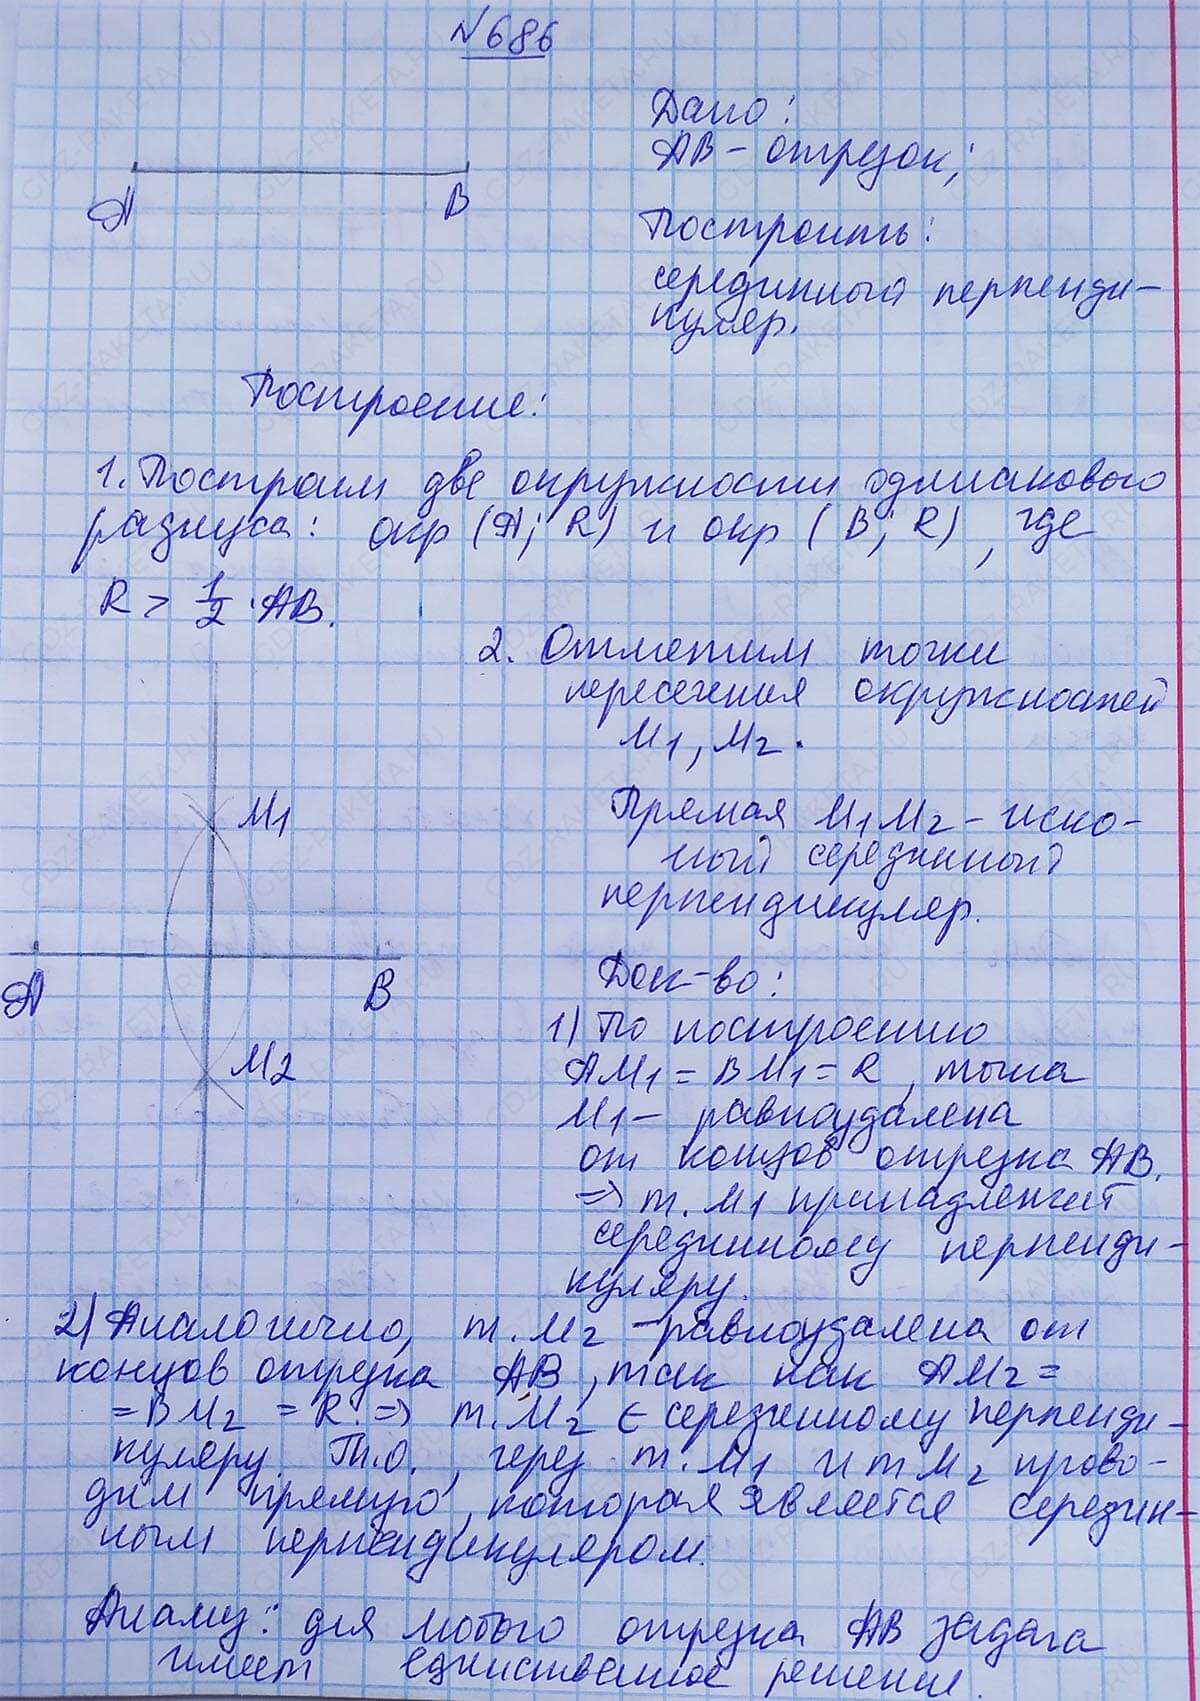 №686
Дано:
AB - отрезок;
A B
Построить:
серединный перпенди-
куляр.
Построение:
1. Построим две окружности одинакового
радиуса: окр (A; R) и окр (B; R), где
R > 1/2 · AB.
2. Отметим точки
пересечения окружностей
M1, M2.
M1
Прямая M1M2 - иско-
мый серединный
перпендикуляр.
A B
M2
Док-во:
1) По построению
AM1 = BM1 = R, точка
M1 - равноудалена
от концов отрезка AB.
=> т. M1 принадлежит
серединному перпенди-
куляру.
2) Аналогично, т. M2 - равноудалена от
концов отрезка AB, так как AM2 =
= BM2 = R. => т. M2 ∈ серединному перпенди-
куляру. Т.О., через т. M1 и т M2 прово-
дим прямую, которая является середин-
ным перпендикуляром.
Анализ: для любого отрезка AB задача
имеет единственное решение.